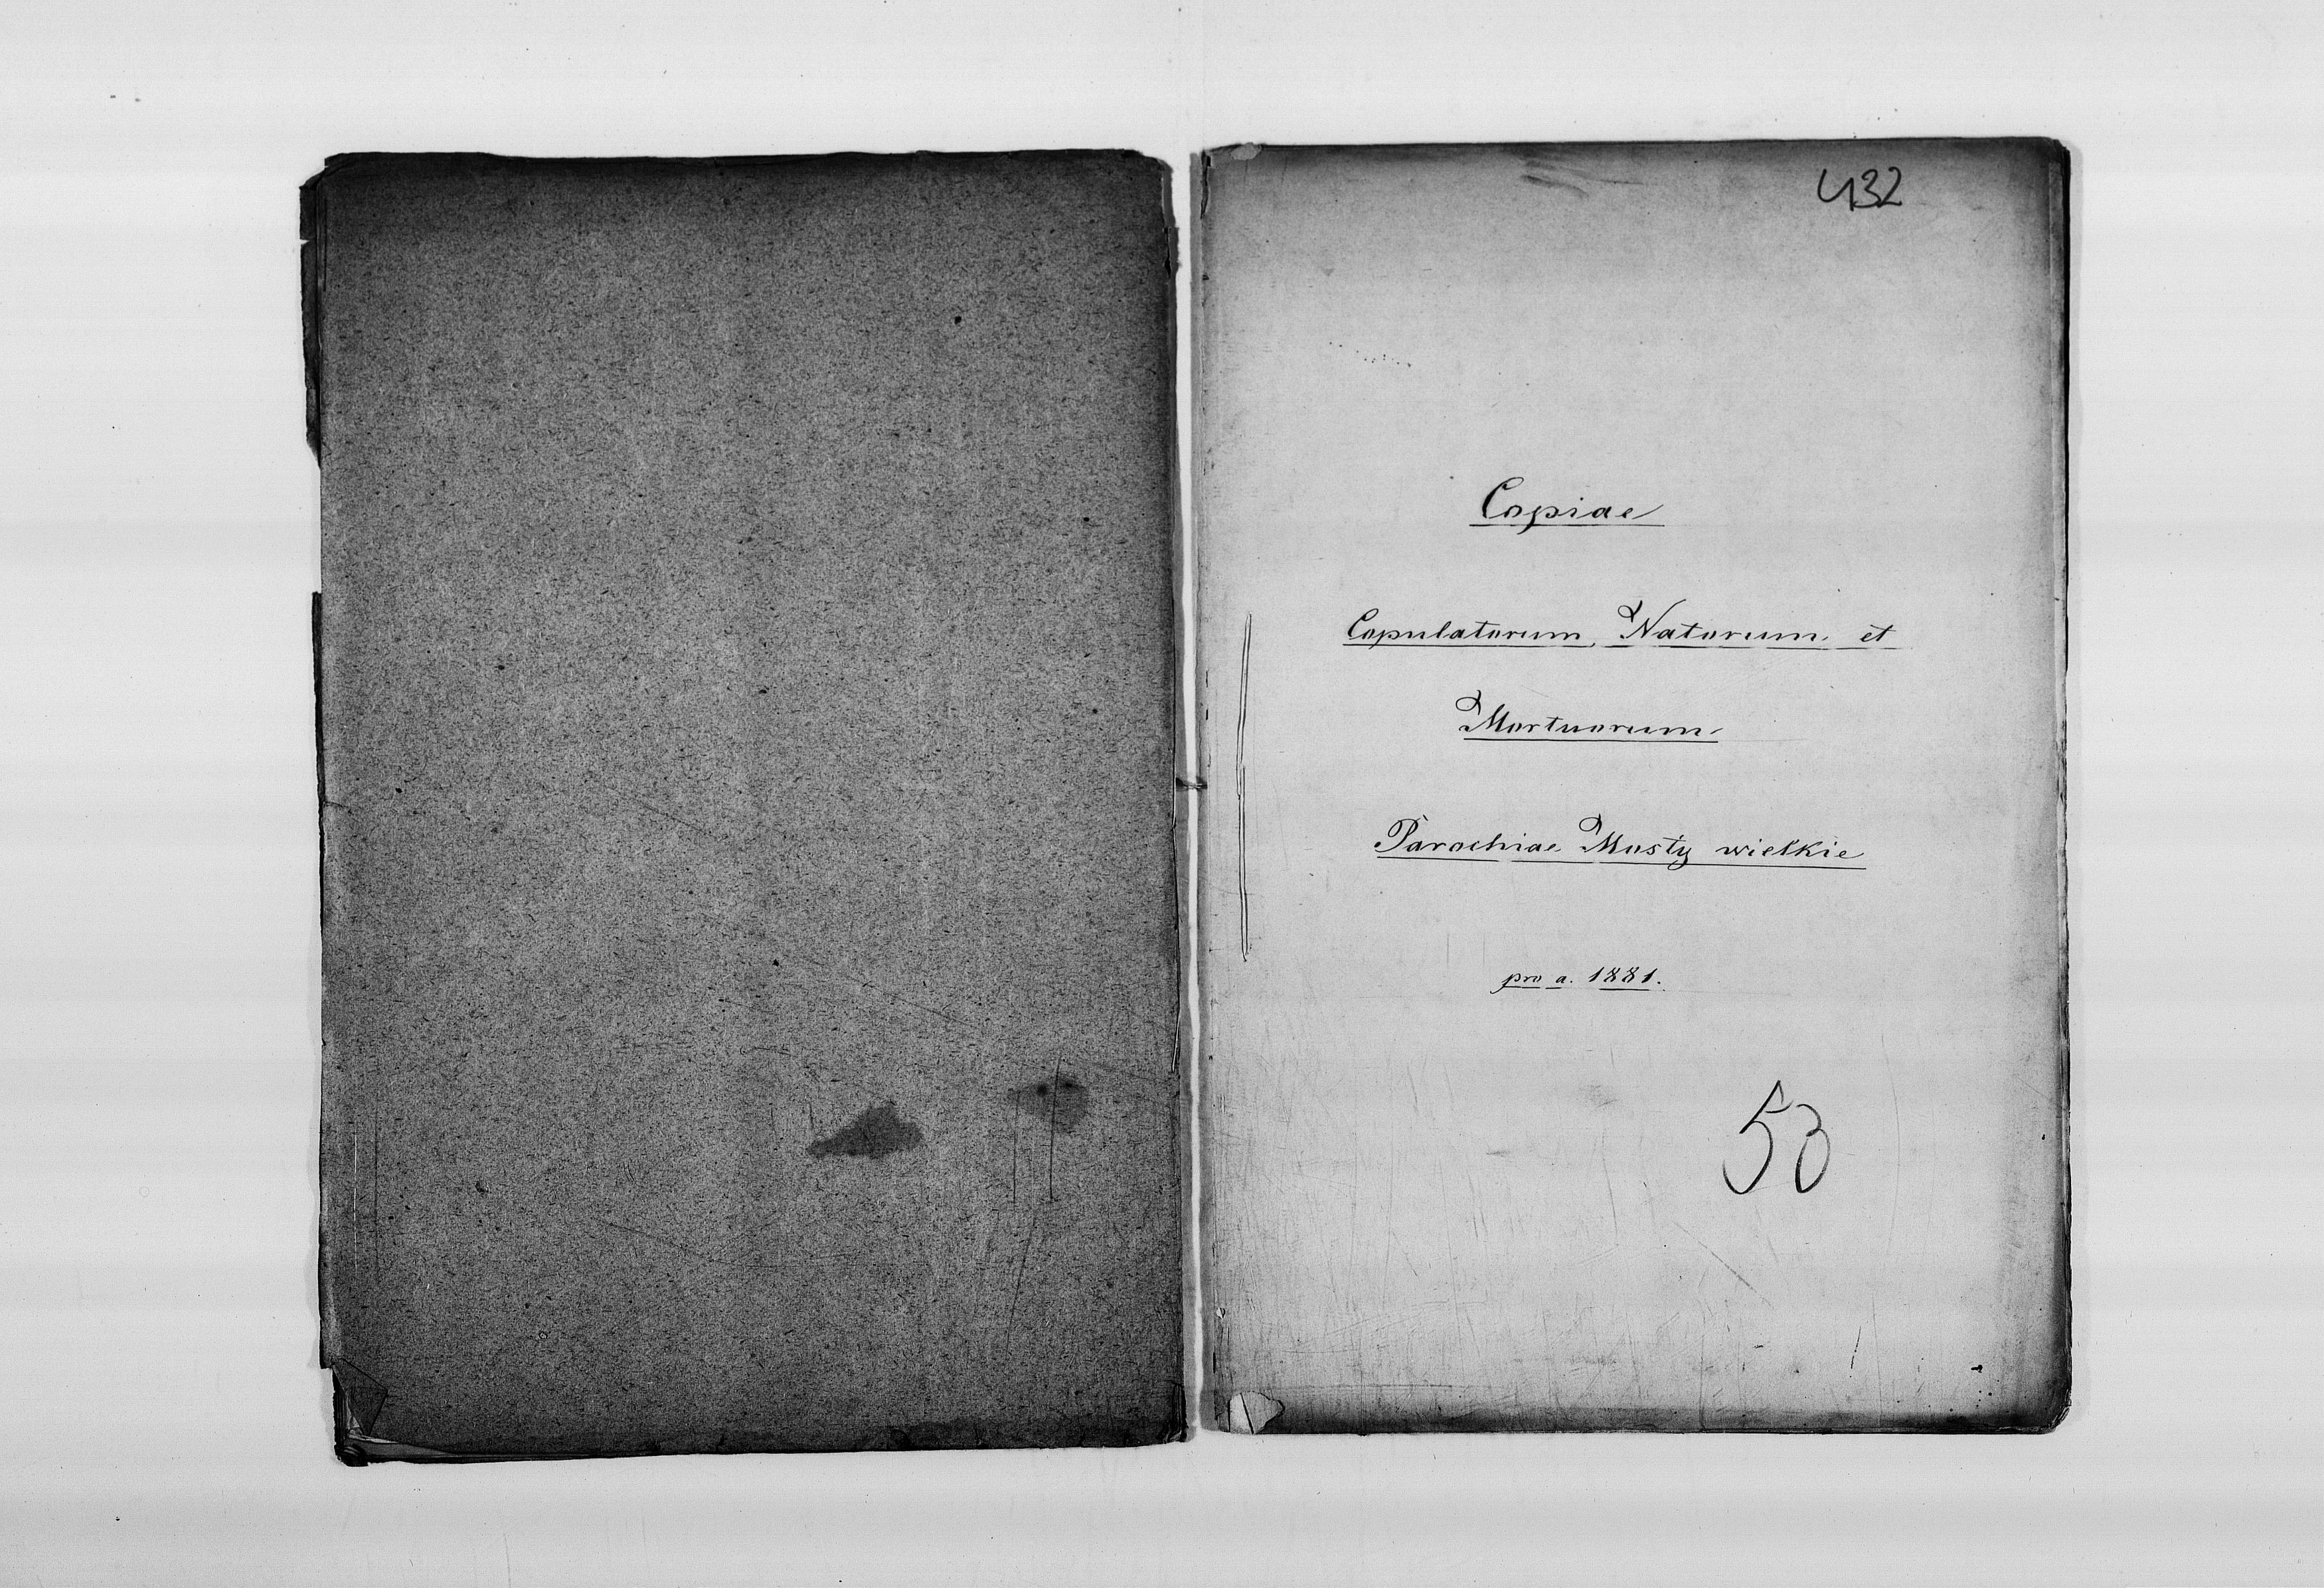 432
Copiae
Copulatorum, Natorum et
Mortuorum
Parochiae Mosty wielkie
pro a. 1881.
53